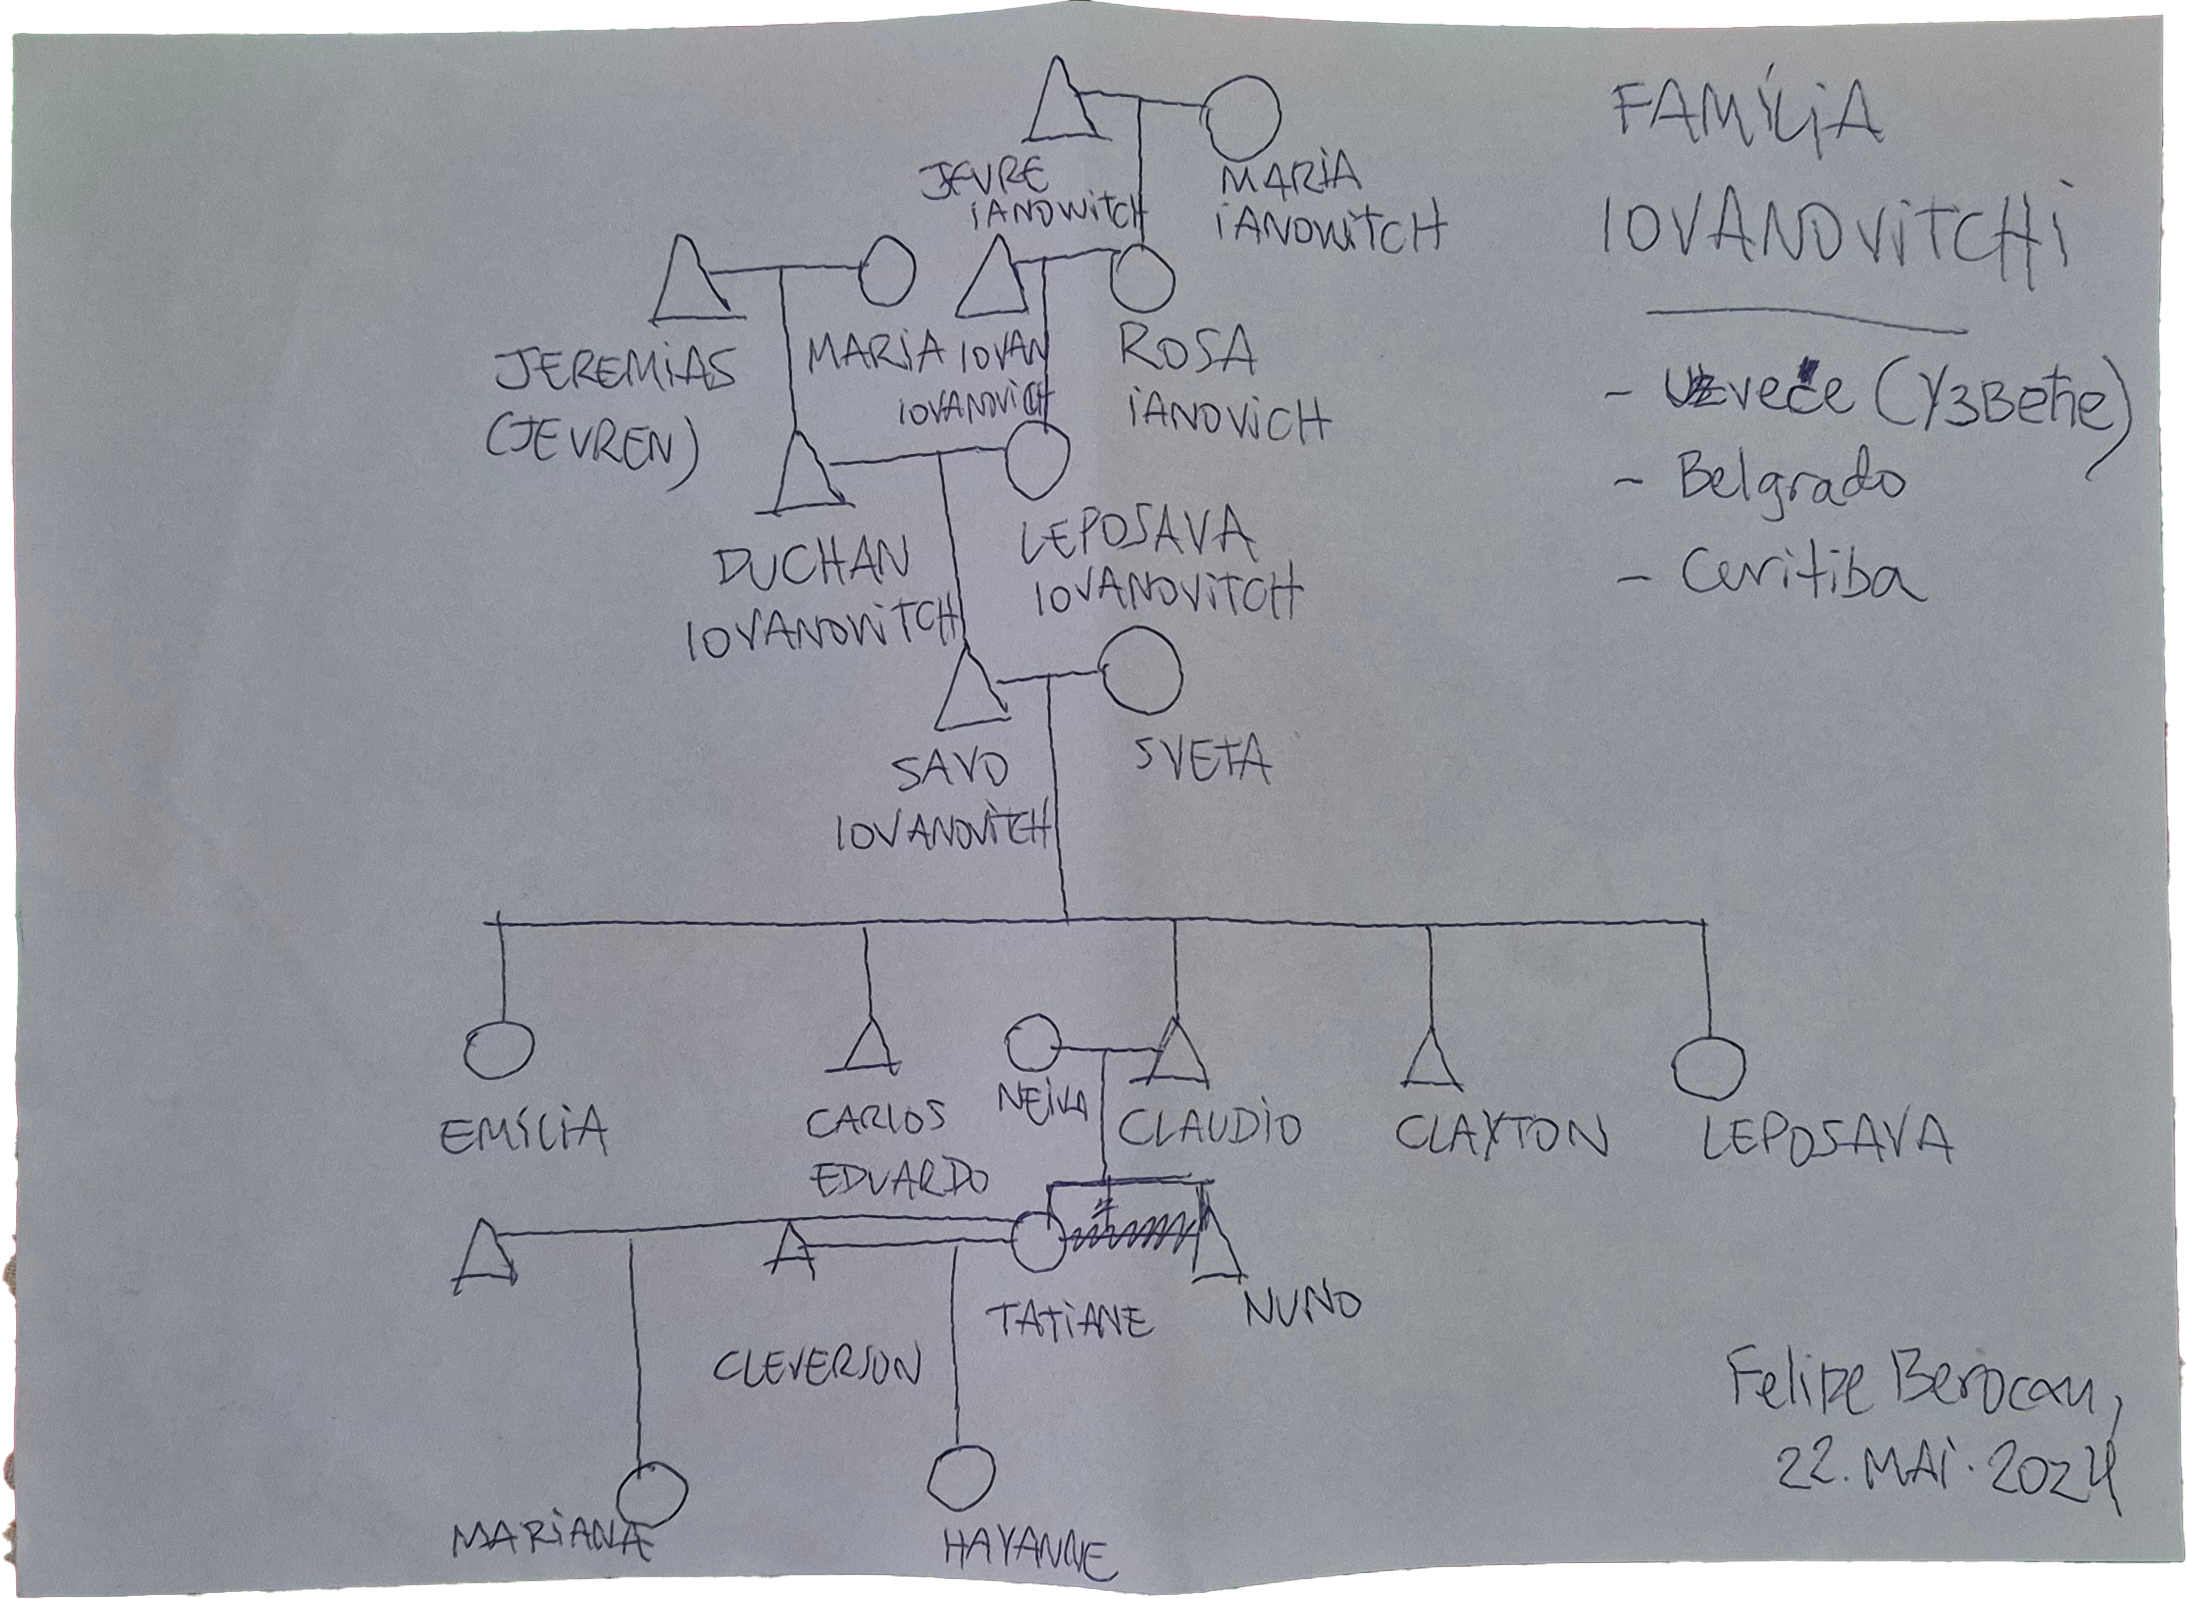 FAMÍLIA
IOVANOVITCHI
- Uzveče (Y3Bethe)
- Belgrado
- Curitiba
JEVRE
IANOWITCH
MARIA
IANOWITCH
JEREMIAS
(JEVREN)
MARIA
IOVAN
IOVANOVICH
ROSA
IANOVICH
DUCHAN
IOVANOVITCH
LEPOSAVA
IOVANOVITCH
SAVO
IOVANOVITCH
SVETA
EMÍLIA
CARLOS
EDUARDO
NEIVA
CLAUDIO
CLAYTON
LEPOSAVA
CLEVERSON
TATIANE
NUNO
MARIANA
HAYANNE
Felipe Berocan,
22.MAI.2024